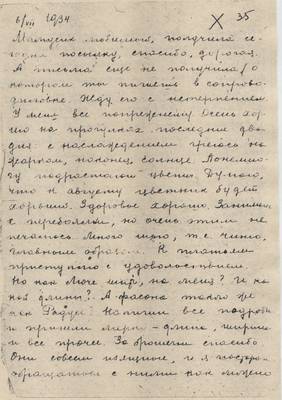 6/VII 1934
X 35
Мамусик любимый, получила се-
годня посылку, спасибо, дорогая.
А письма еще не получила, о
котором ты пишешь в сопрово-
диловке. Жду его с нетерпением
У меня все попрежнему. Очень хор
шо на прогулках последние два
дня: с наслаждением греюсь на
жарком, наконец, солнце. Понемно-
гу подрастают цветы. Думаю,
что к августу цветник будет
хороший. Здоровье хорошо. Занима
с переводом, но очень этим не
много шью, т.е. чиню,
главным образом. К платьям
приступлю с удовольствием.
Но как шить, на меня? И ка
кой длины? А фасона такого же
как Напиши все подроб
и пришли мерки - длина, ширина
и все прочее. За брошки спасибо
Они совсем изящные, и я
обращаться с ними как можно